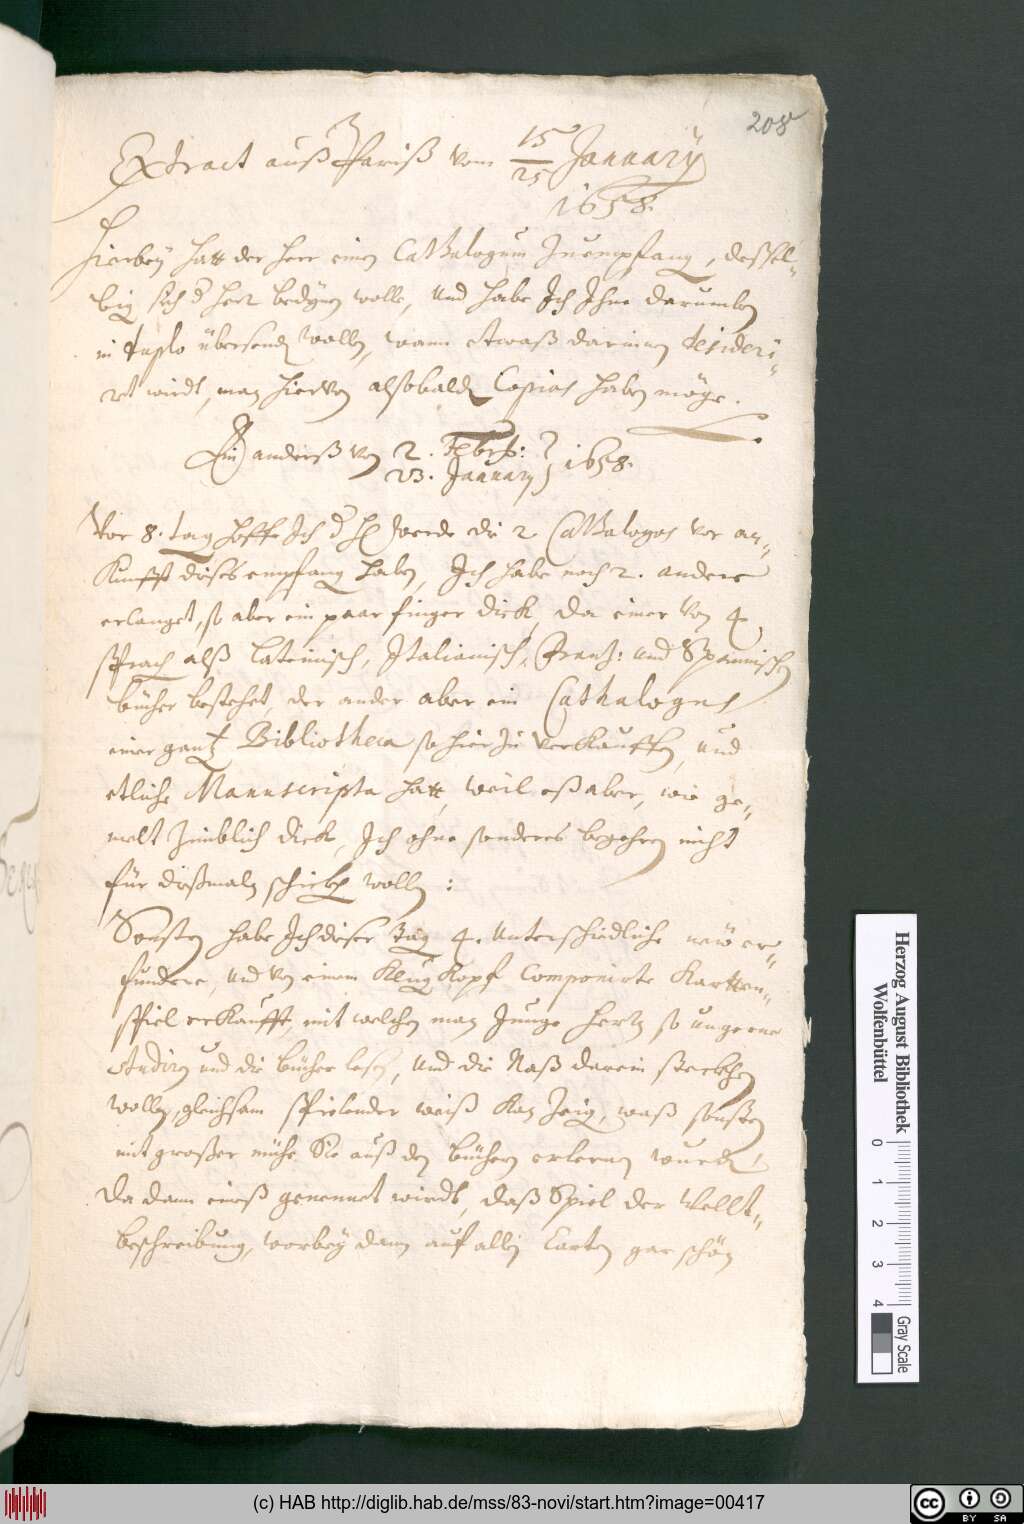 208
Extract auß Pariß vom 15/25 January
1658.
Hierbey hatt der Herr einen Cathalogum zu empfang, desßel-
big sich d Herr bedynen wolle, und habe Ich Ihne darumben
in duplo übersenden wollen, wann etwaß darinnen desideri-
ret wirdt, man hiervon alsobalden Copias haben möge.
Ein anderß von 2. Febr: / 23. January 1658.
Vor 8. tag hoffe Ich d H werde die 2 Cathalogos vor an-
kunfft dieses empfang haben, Ich habe noch 2. andere
erlanget, so aber ein paar finger dick, da einer von 4
sprach alß Lateinisch, Italianisch, Frantz: und Spannischen
bücher bestehet, der ander aber ein Cathalogus
einer gantz Bibliotheca so hier zu verkauffen, und
etliche Manuscripta hatt, weil eß aber, wie ge-
melt zimblich dick, Ich ohne sonders begehren nicht
für dießmaln schicken wollen:
Sonsten habe Ich dieser Tag 4. unterschiedliche new er-
fundene, und von einem klug kopf componirte Kartten-
spiel erkaufft, mit welchen man junge hertz so ungerne
studiren und die bücher lesen, und die Naß darein steckhen
wollen, gleichsam spielender weiß kan zeig, waß sonsten
mit großer mühe Sie auß den büchern erlernen wurden
Da dann eineß genennet wirdt, daß Spiel der Wellt-
beschreibung, worbey dann auf allen Carten gar schön
Herzog August Bibliothek
Wolfenbüttel
0 1 2 3 4
Gray Scale
(c) HAB http://diglib.hab.de/mss/83-novi/start.htm?image=00417
cc BY SA